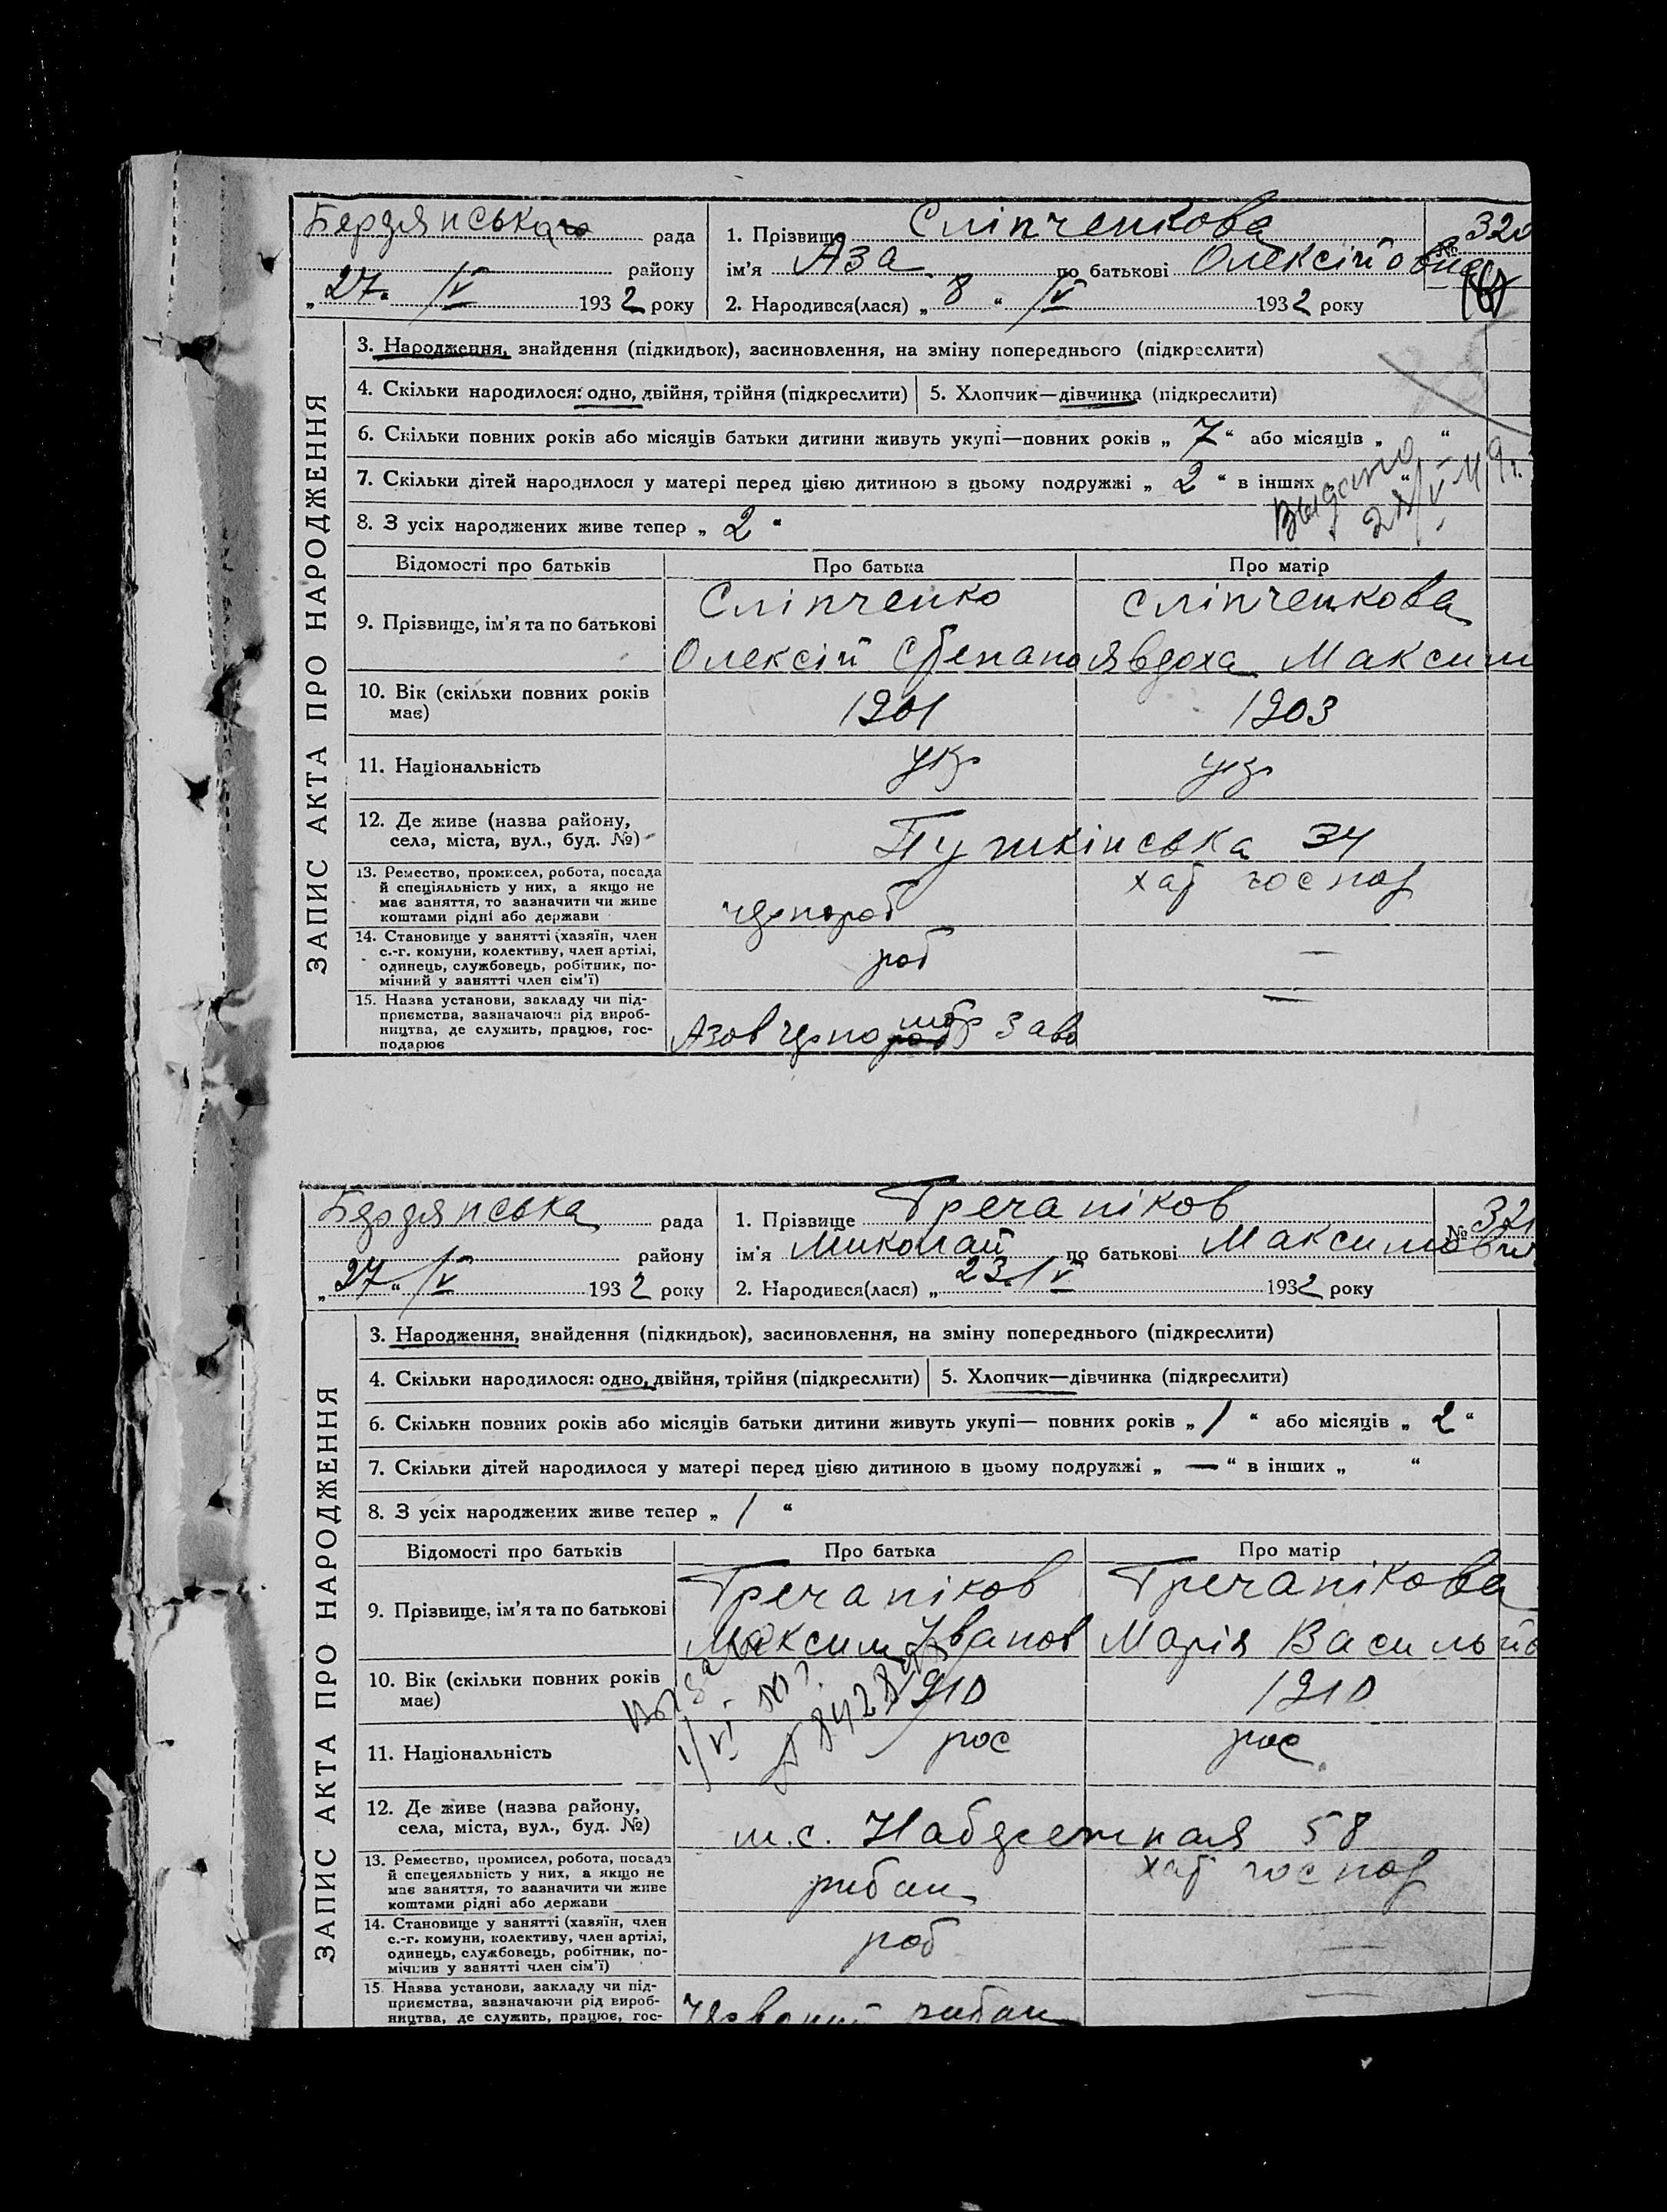 Бердянська рада 1. Прізвище Сліпченкова № 320
району ім'я Аза по батькові Олексійовна
„27. IV 1932 року 2. Народився(лася) „ 8 “ IV 1932 року
ЗАПИС АКТА ПРО НАРОДЖЕННЯ
3. Народження, знайдення (підкидьок), засиновлення, на зміну попереднього (підкреслити)
4. Скільки народилося: одно, двійня, трійня (підкреслити) 5. Хлопчик—дівчинка (підкреслити)
6. Скільки повних років або місяців батьки дитини живуть укупі—повних років „ 7 “ або місяців „ “
7. Скільки дітей народилося у матері перед цією дитиною в цьому подружжі „ 2 “ в інших „ “
8. З усіх народжених живе тепер „ 2 “
Выдано
Відомості про батьків Про батька Про матір
9. Прізвище, ім'я та по батькові Сліпченко Сліпченкова
Олексій Степано Явдоха Максим
10. Вік (скільки повних років має) 1901 1903
11. Національність укр укр
12. Де живе (назва району,
села, міста, вул., буд. №) Пушкінська 34
13. Ремество, промисел, робота, посада
й спеціяльність у них, а якщо не
має заняття, то зазначити чи живе
коштами рідні або держави чорнороб хат господ
14. Становище у занятті (хазяїн, член
с.-г. комуни, колективу, член артілі,
одинець, службовець, робітник, по-
мічний у занятті член сім'ї) роб —
15. Назва установи, закладу чи під-
приємства, зазначаючи рід вироб-
ництва, де служить, працює, гос-
подарює Азов Заво —
Бердянська рада 1. Прізвище Гречаніков № 321
району ім'я Миколай по батькові Максимович
„27“ IV 1932 року 2. Народився(лася) „ 23. IV 1932 року
ЗАПИС АКТА ПРО НАРОДЖЕННЯ
3. Народження, знайдення (підкидьок), засиновлення, на зміну попереднього (підкреслити)
4. Скільки народилося: одно, двійня, трійня (підкреслити) 5. Хлопчик—дівчинка (підкреслити)
6. Скільки повних років або місяців батьки дитини живуть укупі— повних років „ 1 “ або місяців „ 2 “
7. Скільки дітей народилося у матері перед цією дитиною в цьому подружжі „ — “ в інших „ “
8. З усіх народжених живе тепер „ 1 “
Відомості про батьків Про батька Про матір
9. Прізвище, ім'я та по батькові Гречаніков Гречанікова
Максим Іванов Марія Васильов
10. Вік (скільки повних років має) 1910 1910
11. Національність рос рос
12. Де живе (назва району,
села, міста, вул., буд. №) м.с. Набережная 58
13. Ремество, промисел, робота, посада
й спецеяльність у них, а якщо не
має заняття, то зазначити чи живе
коштами рідні або держави рибак хат господ
14. Становище у занятті (хазяїн, член
с.-г. комуни, колективу, член артілі,
одинець, службовець, робітник, по-
мічний у занятті член сім'ї) роб —
15. Назва установи, закладу чи під-
приємства, зазначаючи рід вироб-
ництва, де служить, працює, гос- Червоний рибак —